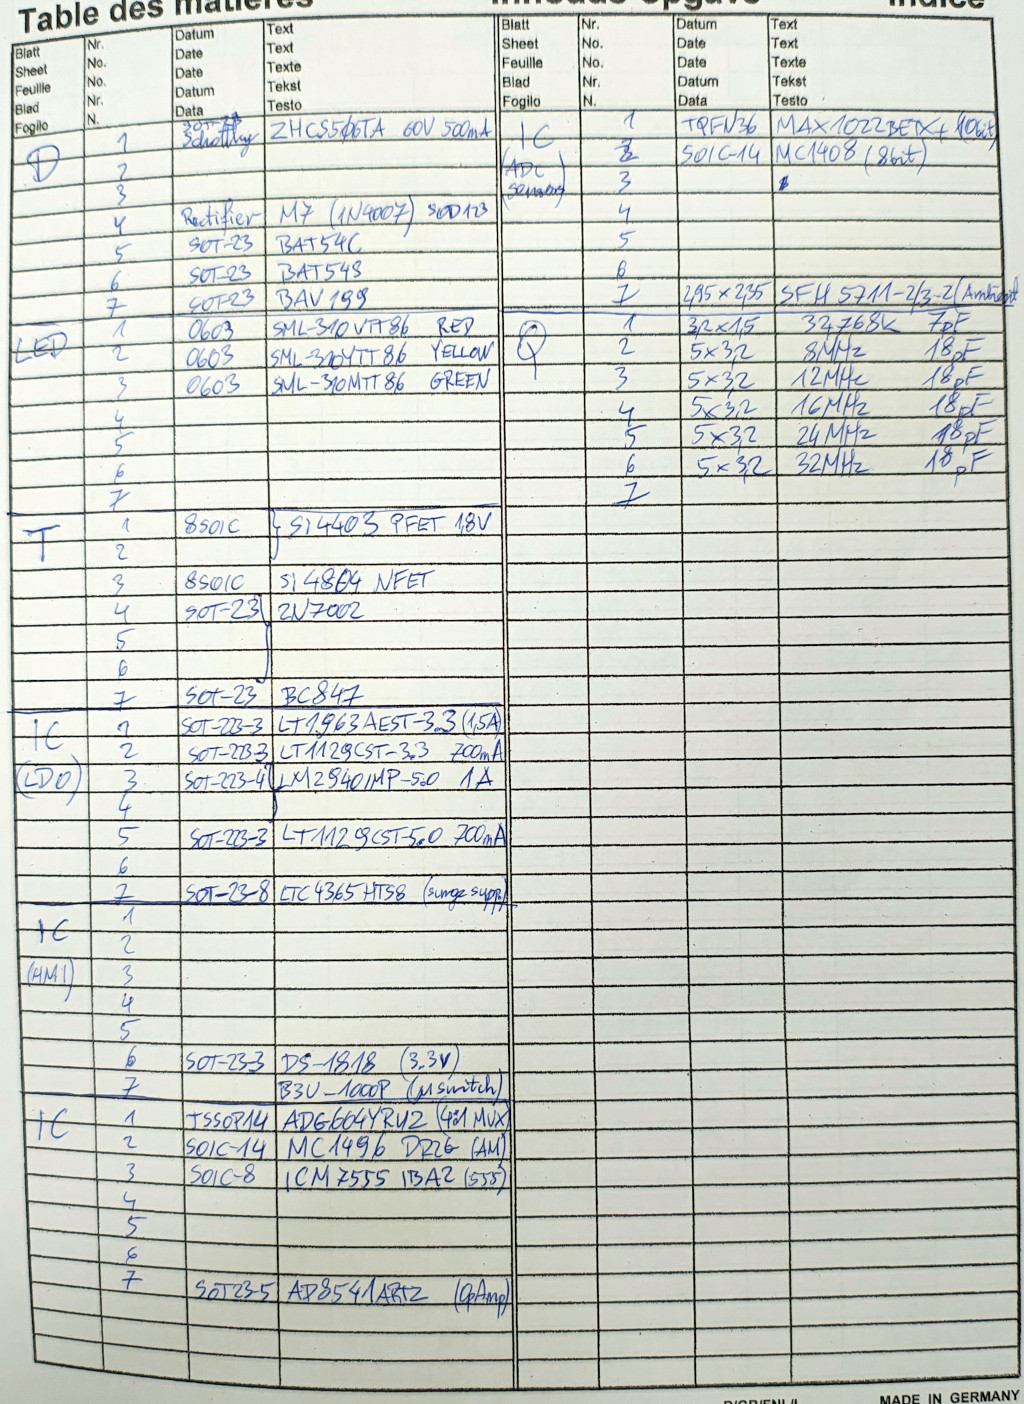 Table des matières Inhouds-opgave Indice
Blatt Nr. Datum Text
Sheet No. Date Text
Feuille No. Date Texte
Blad Nr. Datum Tekst
Foglio N. Data Testo
D 1 SOT-23 Schottky ZHCS506TA 60V 500mA
2
3
4 Rectifier M7 (1N4007) SOD123
5 SOT-23 BAT54C
6 SOT-23 BAT54S
7 SOT23 BAV199
LED 1 0603 SML-310VTT86 RED
2 0603 SML-310YTT86 YELLOW
3 0603 SML-310MTT86 GREEN
4
5
6
7
T 1 8SOIC Si4403 PFET 1,8V
2
3 8SOIC Si4864 NFET
4 SOT-23 2N7002
5
6
7 SOT-23 BC847
IC 1 SOT-223-3 LT1963AEST-3.3 (1,5A)
(LDO) 2 SOT-223-3 LT1129CST-3.3 700mA
3 SOT-223-4 LM2940IMP-5.0 1A
4
5 SOT-223-3 LT1129CST-5.0 700mA
6
7 SOT-23-8 LTC4365HTS8 (surge supp.)
IC 1
2
(HMI) 3
4
5
6 SOT-23-3 DS-1818 (3.3V)
7 B3U-1000P (µswitch)
IC 1 TSSOP14 ADG604YRUZ (4:1 MUX)
2 SOIC-14 MC1496 DR2G (AM)
3 SOIC-8 ICM7555 IBAZ (555)
4
5
6
7 SOT23-5 AD8541ARTZ (OpAmp)
Blatt Nr. Datum Text
Sheet No. Date Text
Feuille No. Date Texte
Blad Nr. Datum Tekst
Foglio N. Data Testo
IC 1 TQFN36 MAX1022BETX+ 10bit
(ADC 2 SOIC-14 MC1408 (8bit)
sensors) 3
4
5
6
7 2,95×2,35 SFH 5711-2/3-2 (Ambient
Q 1 3,2×1,5 32,768K 7pF
2 5×3,2 8MHz 18pF
3 5×3,2 12MHz 18pF
4 5×3,2 16MHz 18pF
5 5×3,2 24MHz 18pF
6 5×3,2 32MHz 18pF
7
MADE IN GERMANY